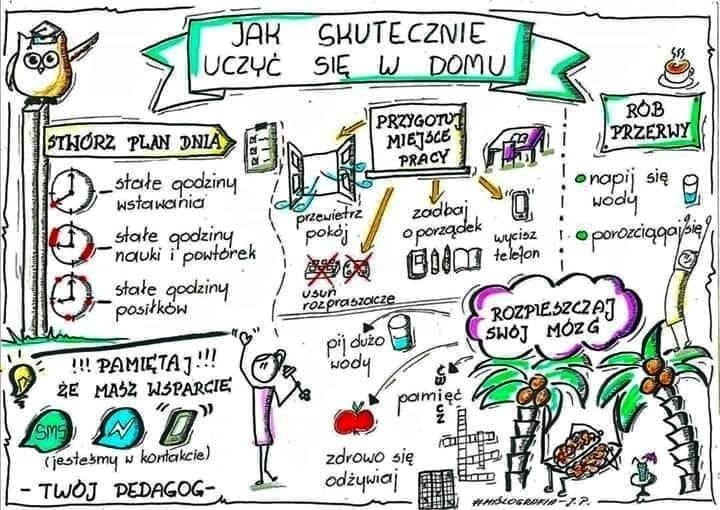 JAK SKUTECZNIE
UCZYĆ SIĘ W DOMU
STWÓRZ PLAN DNIA
stałe godziny
wstawania
stałe godziny
nauki i powtórek
stałe godziny
posiłków
PRZYGOTUJ
MIEJSCE
PRACY
przewietrz
pokój
zadbaj
o porządek
wycisz
telefon
usuń
rozpraszacze
RÓB
PRZERWY
napij się
wody
porozciągaj się
ROZPIESZCZAJ
SWÓJ MÓZG
pij dużo
wody
ĆWICZ
pamięć
zdrowo się
odżywiaj
!!! PAMIĘTAJ !!!
ŻE MASZ WSPARCIE
SMS
(jesteśmy w kontakcie)
- TWÓJ PEDAGOG -
#MYŚLOGRAFIA - J.P.